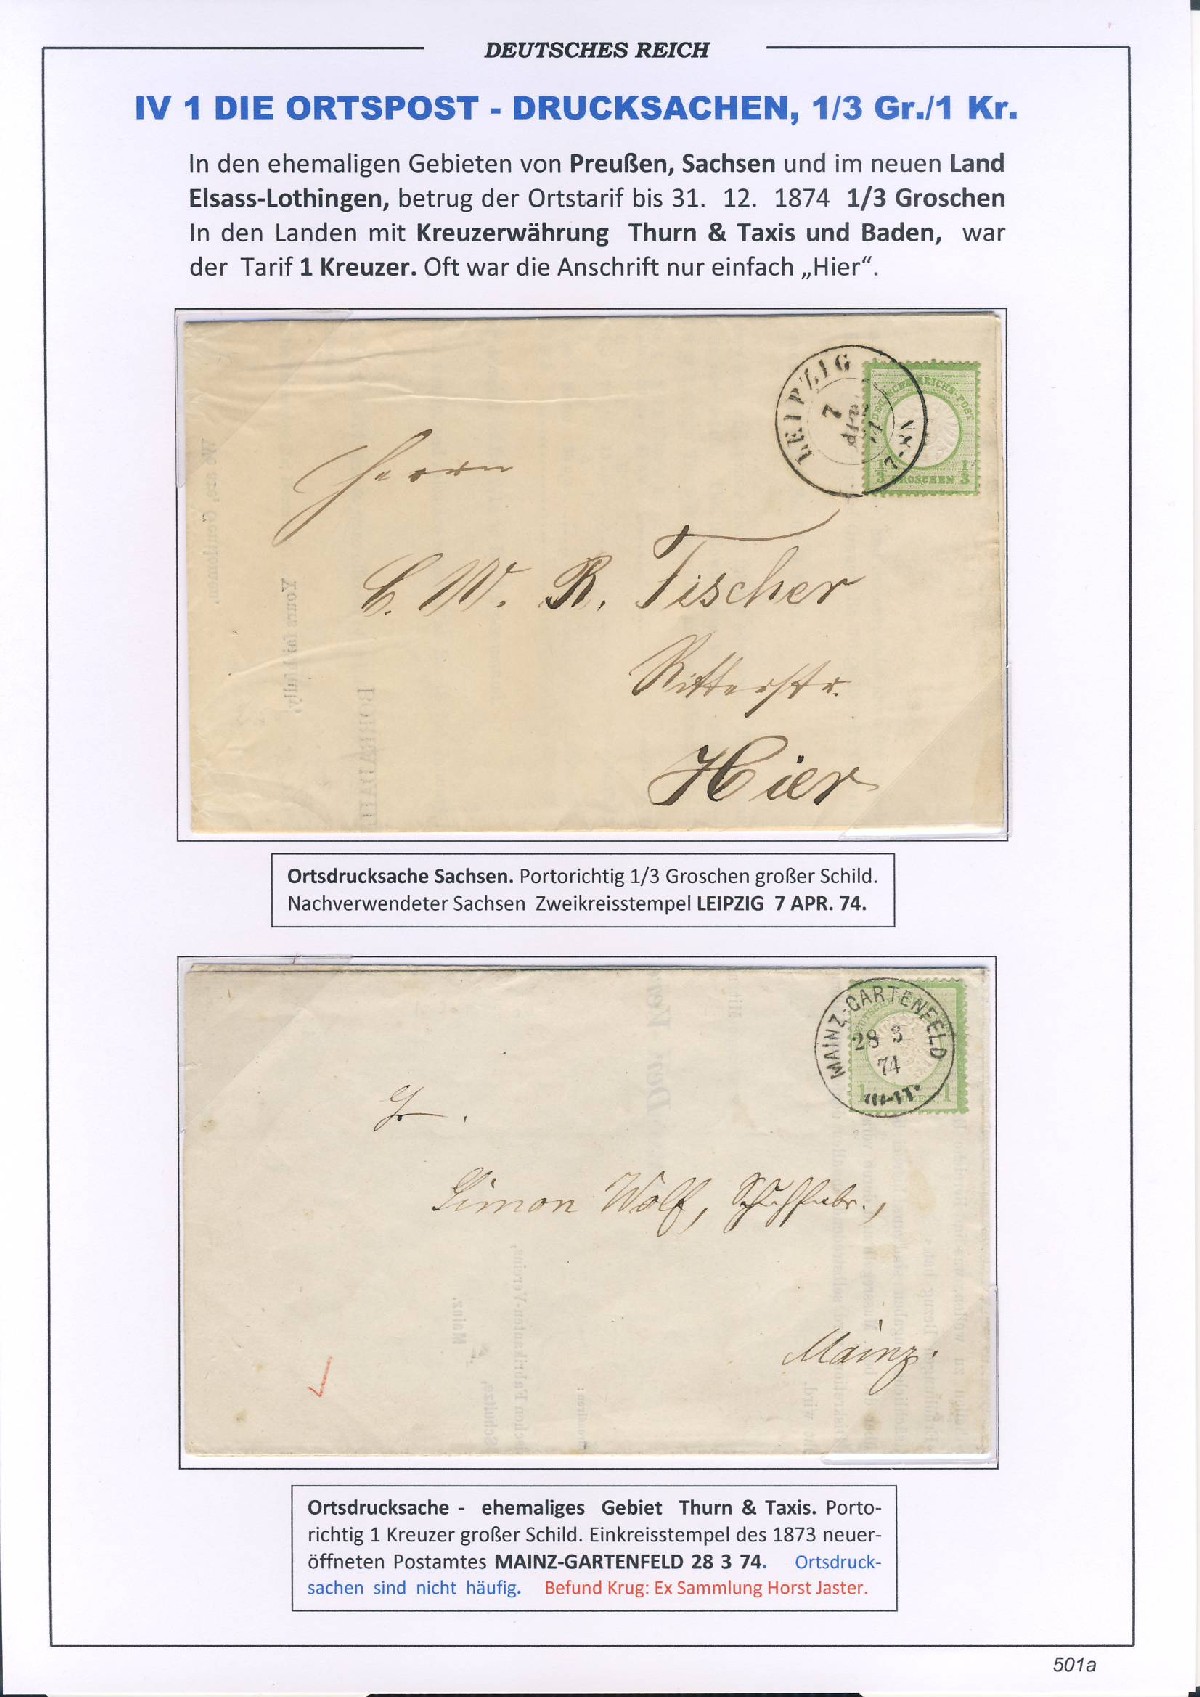 DEUTSCHES REICH
IV 1 DIE ORTSPOST - DRUCKSACHEN, 1/3 Gr./1 Kr.
In den ehemaligen Gebieten von Preußen, Sachsen und im neuen Land
Elsass-Lothingen, betrug der Ortstarif bis 31. 12. 1874 1/3 Groschen
In den Landen mit Kreuzerwährung Thurn & Taxis und Baden, war
der Tarif 1 Kreuzer. Oft war die Anschrift nur einfach „Hier“.
LEIPZIG
7
DEUTSCHE REICHS-POST
1/3 GROSCHEN 1/3
Herrn
C. W. R. Tischer
Ritterstr.
Hier
Ortsdrucksache Sachsen. Portorichtig 1/3 Groschen großer Schild.
Nachverwendeter Sachsen Zweikreisstempel LEIPZIG 7 APR. 74.
MAINZ-GARTENFELD
28 3
74
1 1
Simon Wolf,
Mainz.
Ortsdrucksache - ehemaliges Gebiet Thurn & Taxis. Porto-
richtig 1 Kreuzer großer Schild. Einkreisstempel des 1873 neuer-
öffneten Postamtes MAINZ-GARTENFELD 28 3 74. Ortsdruck-
sachen sind nicht häufig. Befund Krug: Ex Sammlung Horst Jaster.
501a